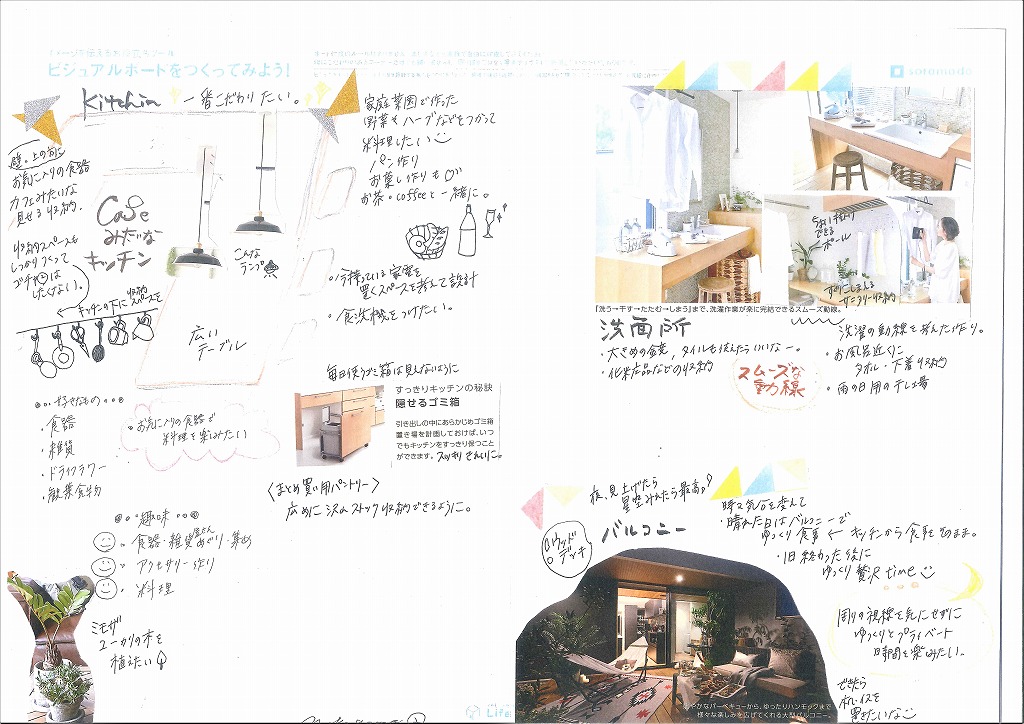 ビジュアルボードをつくってみよう!
sotomado
Kitchin 一番こだわりたい。
壁の上の方に
お気に入りの食器
カフェみたいな
見せる収納。
収納スペースも
しっかりつくって
ゴチャゴチャは
したくない。
Cafe
みたいな
キッチン
キッチンの下に収納スペースを
こんな
ランプ
広い
テーブル
家庭菜園で作った
野菜やハーブなどをつかって
料理したい
パン作り
お菓子作りも
お茶・coffeeと一緒に。
・今持っている家電を
置くスペースを考えて設計
・食洗機をつけたい。
毎日使うゴミ箱は見えないように
すっきりキッチンの秘訣
隠せるゴミ箱
引き出しの中にあらかじめゴミ箱
置き場を計画しておけば、いつ
でもキッチンをすっきり保つこと
ができます。スッキリきれいに。
〈まとめ買い用パントリー〉
広めに沢山ストック収納できるように。
好きなもの
・食器
・雑貨
・ドライフラワー
・観葉植物
・お気に入りの食器で
料理を楽しみたい
趣味
食器・雑貨屋さんめぐり・集め
アクセサリー作り
料理
ミモザ
ユーカリの木を
植えたい
できる
ポール
「洗う→干す→たたむ→しまう」まで、洗濯作業が楽に完結できるスムーズ動線。
洗面所
・大きめの鏡、タイルも使えたらいいなー。
・化粧品などの収納
スムーズな
動線
洗濯の動線を考えた作り。
・お風呂近くに
タオル・下着収納
・雨の日用の干し場
夜、見上げたら
星空みれたら最高
バルコニー
ウッド
デッキ
時々気分を変えて
・晴れた日はバルコニーで
ゆっくり食事 ← キッチンから食事をそのまま。
・1日終わった後に
ゆっくり贅沢time
周りの視線を気にせずに
ゆっくりとプライベート
時間を楽しみたい。
できたら
置きたいな
やかなバーベキューから、ゆったりハンモックまで
様々な楽しみを広げてくれる大型バルコニー。
Life